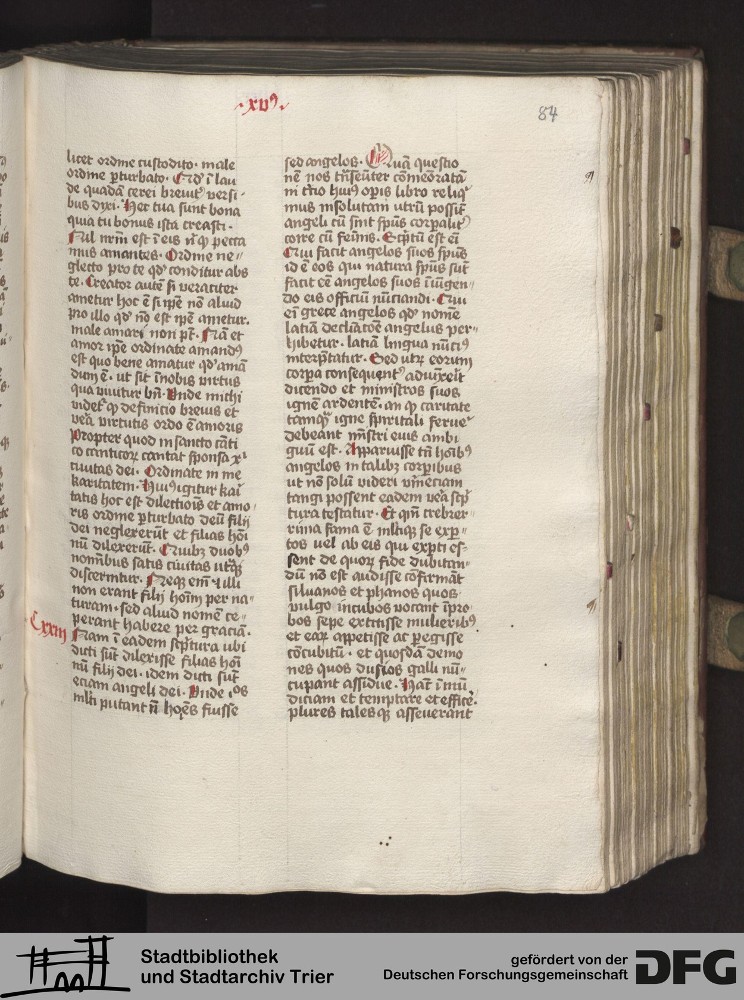 ·xv⁹·
84
licet ordine custodito · male
ordine ꝑturbato · Qđ ī lau
de quadā cerei breuit᷑ versi ·
bus dixi · Hec tua sunt bona
quia tu bonus ista creasti ·
Nil nr̄m est ī eis nͥ ꝙ pecca
mus amantes · Ordine ne〃
glecto pro te qđ conditur abs
te · Creator aute᷑ si veraciter
ametur hoc ē si ip̄e nō aliud
pro illo qđ nō est ip̄e ametur ·
male amari non pt̄ · Nā et
amor ip̄e ordinate amand⁹
est quo bene amatur qđ amā
dum ē · vt sit īnobis virtus
qua viuitur bn̄ · Vnde michi
videt᷑ ꝙ definicio breuis et
vēa virtutis ordo ē amoris
Propter quod in sancto cāti
co canticoꝝ cantat sponsa xͥ
ciuitas dei · Ordinate in me
karitatem · Hui⁹ igitur kari
tatis hoc est dilectiōis et amo〃
ris ordine ꝑturbato deū filij
dei neglexerūt et filias hōi
nū dilexerūt · Quibꝫ duob⁹
nominibus satis ciuitas utraqꝫ
discernitur · Neqꝫ em̄ · illi
non erant filij hoīm per na〃
turam · sed aliud nomē ce〃
perant habere per graciā ·
Cxxiij
Nam ī eadem scp̄tura ubi
dicti sūt dilexisse filias hoī
nū filij dei · idem dicti sūt
eciam angeli dei · Vnde illos
ml̄ti putant nō hoīes fuisse
sed angelos · Quā questio
nē nos trāseūter cōmeoratā
in t̄cio hui⁹ opis libro reliq᷑
mus insolutam utrū possīt
angeli cū sint sp̄us corpalit᷑
coire cū feīs · Scp̄tū est eī
Qui facit angelos suos sp̄us
id ē eos qui natura sp̄us sūt
facit eē angelos suos īiūgen〃
do eis officiū nūciandi · Qui
eī grece angelos qđ nomē
latiā declinacōē angelus per〃
hibetur · latiā lingua nūci⁹
interp̄tatur · Sed utꝝ eorum
corpa consequent᷑ adiūxerit
dicendo et ministros suos
ignē ardentē · an ꝙ caritate
tamqᷓ igne spiritali feruere
debeant mīstri eius ambi
guū est · Apparuisse tn̄ hoībꝫ
angelos in talibꝫ corpibus
ut nō solū videri verumeciam
tangi possent eadem vēa scp̄
tura testatur · Et qm̄ creber〃
rima fama ē ml̄tiqꝫ se exp〃
tos uel ab eis qui expti es〃
sent de quoꝝ fide dubitan〃
dū nō est audisse cōfirmāt
siluanos et phanos quos
vulgo incubos vocant īpro〃
bos sepe extitisse mulierib⁹
et eaꝝ appetisse ac pegisse
cōcubitū · et quosdā demo
nes quos dusios galli nū〃
cupant assidue · Hanc īmū
diciam et temptare et efficē ·
plures talesqꝫ asseuerant
Stadtbibliothek
und Stadtarchiv Trier
gefördert von der
Deutschen Forschungsgemeinschaft
DFG